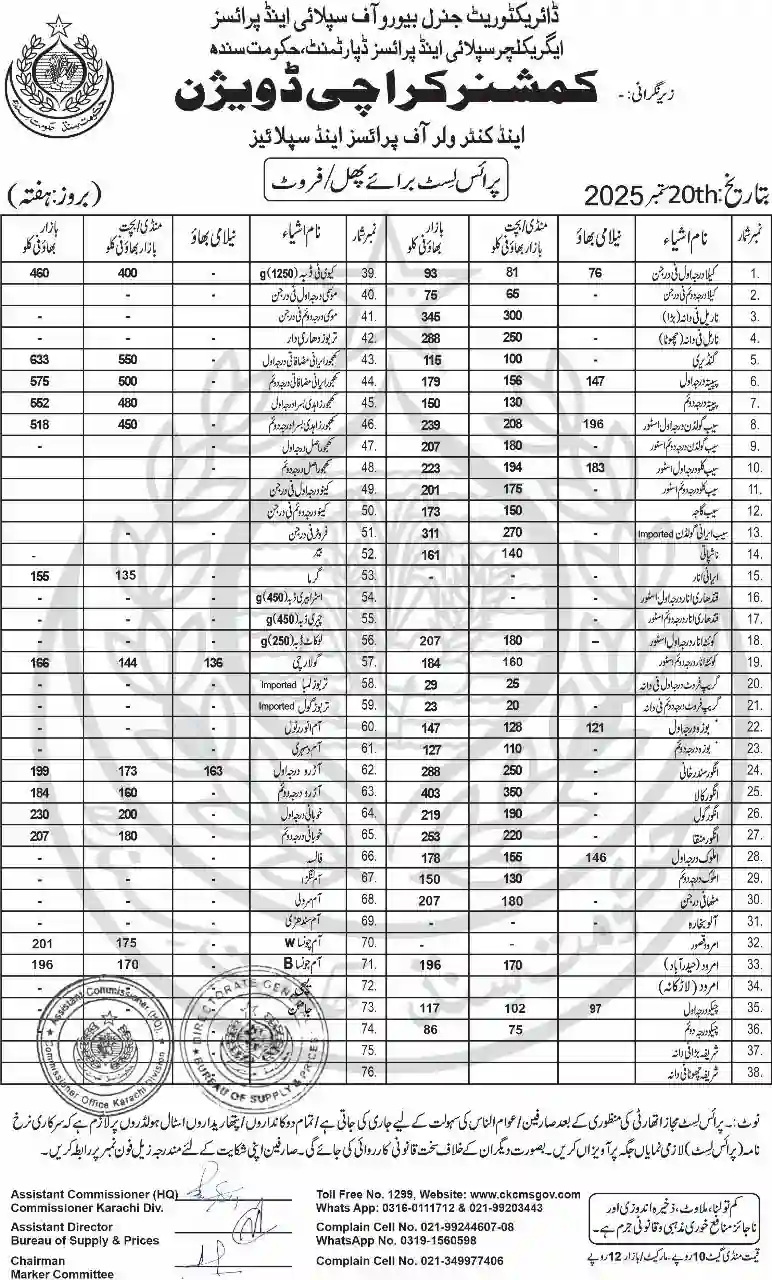 ڈائریکٹوریٹ جنرل بیورو آف سپلائی اینڈ پرائسز
ایگریکلچر سپلائی اینڈ پرائسز ڈپارٹمنٹ، حکومت سندھ
زیرِ نگرانی: - کمشنر کراچی ڈویژن
اینڈ کنٹرولر آف پرائسز اینڈ سپلائیز
پرائس لسٹ برائے پھل / فروٹ
بتاریخ: 20th ستمبر 2025
(بروز: ہفتہ)
نمبر شمار نام اشیاء نیلامی بھاؤ منڈی/بچت بازار بھاؤ فی کلو بازار بھاؤ فی کلو
1. کیلا درجہ اول فی درجن 76 81 93
2. کیلا درجہ دوئم فی درجن - 65 75
3. ناریل فی دانہ (بڑا) - 300 345
4. ناریل فی دانہ (چھوٹا) - 250 288
5. گنڈیری - 100 115
6. پپیتہ درجہ اول 147 156 179
7. پپیتہ درجہ دوئم - 130 150
8. سیب گولڈن درجہ اول اسٹور 196 208 239
9. سیب گولڈن درجہ دوئم اسٹور - 180 207
10. سیب کلو درجہ اول اسٹور 183 194 223
11. سیب کلو درجہ دوئم اسٹور - 175 201
12. سیب گاجہ - 150 173
13. سیب ایرانی گولڈن Imported - 270 311
14. ناشپاتی - 140 161
15. ایرانی انار - - -
16. قندھاری انار درجہ اول اسٹور
17. قندھاری انار درجہ دوئم اسٹور
18. کوئٹہ انار درجہ اول اسٹور – 180 207
19. کوئٹہ انار درجہ دوئم اسٹور - 160 184
20. گریپ فروٹ درجہ اول فی دانہ - 25 29
21. گریپ فروٹ درجہ دوئم فی دانہ - 20 23
22. بوزہ درجہ اول 121 128 147
23. بوزہ درجہ دوئم - 110 127
24. انگور سندرخانی - 250 288
25. انگور کالا - 350 403
26. انگور گول - 190 219
27. انگور منقا - 220 253
28. املوک درجہ اول 146 155 178
29. املوک درجہ دوئم - 130 150
30. مٹھا فی درجن - 180 207
31. آلو بخارہ
32. امرود قصور - - -
33. امرود (حیدرآباد) - 170 196
34. امرود (لاڑکانہ)
35. چیکو درجہ اول 97 102 117
36. چیکو درجہ دوئم - 75 86
37. شریفہ بڑا فی دانہ
38. شریفہ چھوٹا فی دانہ
نمبر شمار نام اشیاء نیلامی بھاؤ منڈی/بچت بازار بھاؤ فی کلو بازار بھاؤ فی کلو
39. کیوی فی ڈبہ (1250)g - 400 460
40. موسمی درجہ اول فی درجن - - -
41. موسمی درجہ دوئم فی درجن - - -
42. تربوز دھاری دار - - -
43. کھجور ایرانی مضافاتی درجہ اول - 550 633
44. کھجور ایرانی مضافاتی درجہ دوئم - 500 575
45. کھجور زاہدی بسرا درجہ اول - 480 552
46. کھجور زاہدی بسرا درجہ دوئم - 450 518
47. کھجور اصل درجہ اول - - -
48. کھجور اصل درجہ دوئم - -
49. کینو درجہ اول فی درجن
50. کینو درجہ دوئم فی درجن
51. فروٹر فی درجن - -
52. بیر - -
53. گرما - 135 155
54. اسٹرابیری ڈبہ (450)g - - -
55. چیری ڈبہ (450)g - - -
56. لوکاٹ ڈبہ (250)g - - -
57. گولارچی 136 144 166
58. تربوز لمبا Imported - - -
59. تربوز گول Imported - - -
60. آم انور رٹول - - -
61. آم دسہری - - -
62. آڑو درجہ اول 163 173 199
63. آڑو درجہ دوئم - 160 184
64. خوبانی درجہ اول - 200 230
65. خوبانی درجہ دوئم - 180 207
66. فالسہ - - -
67. آم لنگڑا - - -
68. آم سرولی - - -
69. آم سندھڑی - - -
70. آم چونسا W - 175 201
71. آم چونسا B - 170 196
72.
73. جامن
74.
75.
76.
Assistant Commissioner (HQ).
Commissioner Office Karachi Division
DIRECTORATE GENERAL
BUREAU OF SUPPLY & PRICES
نوٹ:۔ پرائس لسٹ مجاز اتھارٹی کی منظوری کے بعد صارفین / عوام الناس کی سہولت کے لیے جاری کی جاتی ہے / تمام دوکانداروں / پتھاریداروں / اسٹال ہولڈروں پر لازم ہے کہ سرکاری نرخ
نامہ (پرائس لسٹ) لازمی نمایاں جگہ پر آویزاں کریں۔ بصورت دیگر ان کے خلاف سخت قانونی کارروائی کی جائے گی۔ صارفین اپنی شکایت کے لئے مندرجہ ذیل فون نمبر پر رابطہ کریں۔
Assistant Commissioner (HQ)
Commissioner Karachi Div.
Assistant Director
Bureau of Supply & Prices
Chairman
Marker Committee
Toll Free No. 1299, Website: www.ckcmsgov.com
Whats App: 0316-0111712 & 021-99203443
Complain Cell No. 021-99244607-08
WhatsApp No. 0319-1560598
Complain Cell No. 021-349977406
کم تولنا، ملاوٹ، ذخیرہ اندوزی اور
ناجائز منافع خوری مذہبی و قانونی جرم ہے۔
قیمت منڈی گیٹ 10 روپے، مارکیٹ / بازار 12 روپے